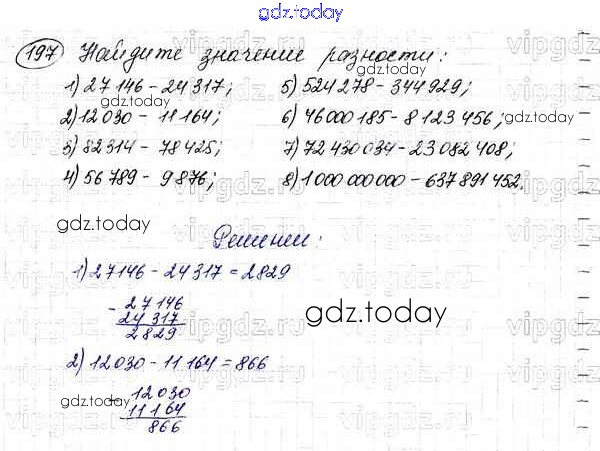 gdz.today
197 Найдите значение разности:
1) 27 146 - 24 317; 5) 524 278 - 344 929;
gdz.today gdz.today
2) 12 030 - 11 164; 6) 46 000 185 - 8 123 456;
gdz.today
3) 82 314 - 78 425; 7) 72 430 034 - 23 082 408;
gdz.today
4) 56 789 - 9 876; 8) 1 000 000 000 - 637 891 452.
gdz.today
Решение:
1) 27 146 - 24 317 = 2829
- 27 146
24 317
2 829
gdz.today
2) 12 030 - 11 164 = 866
- 12 030
gdz.today
11 164
866
gdz.today
vipgdz.ru